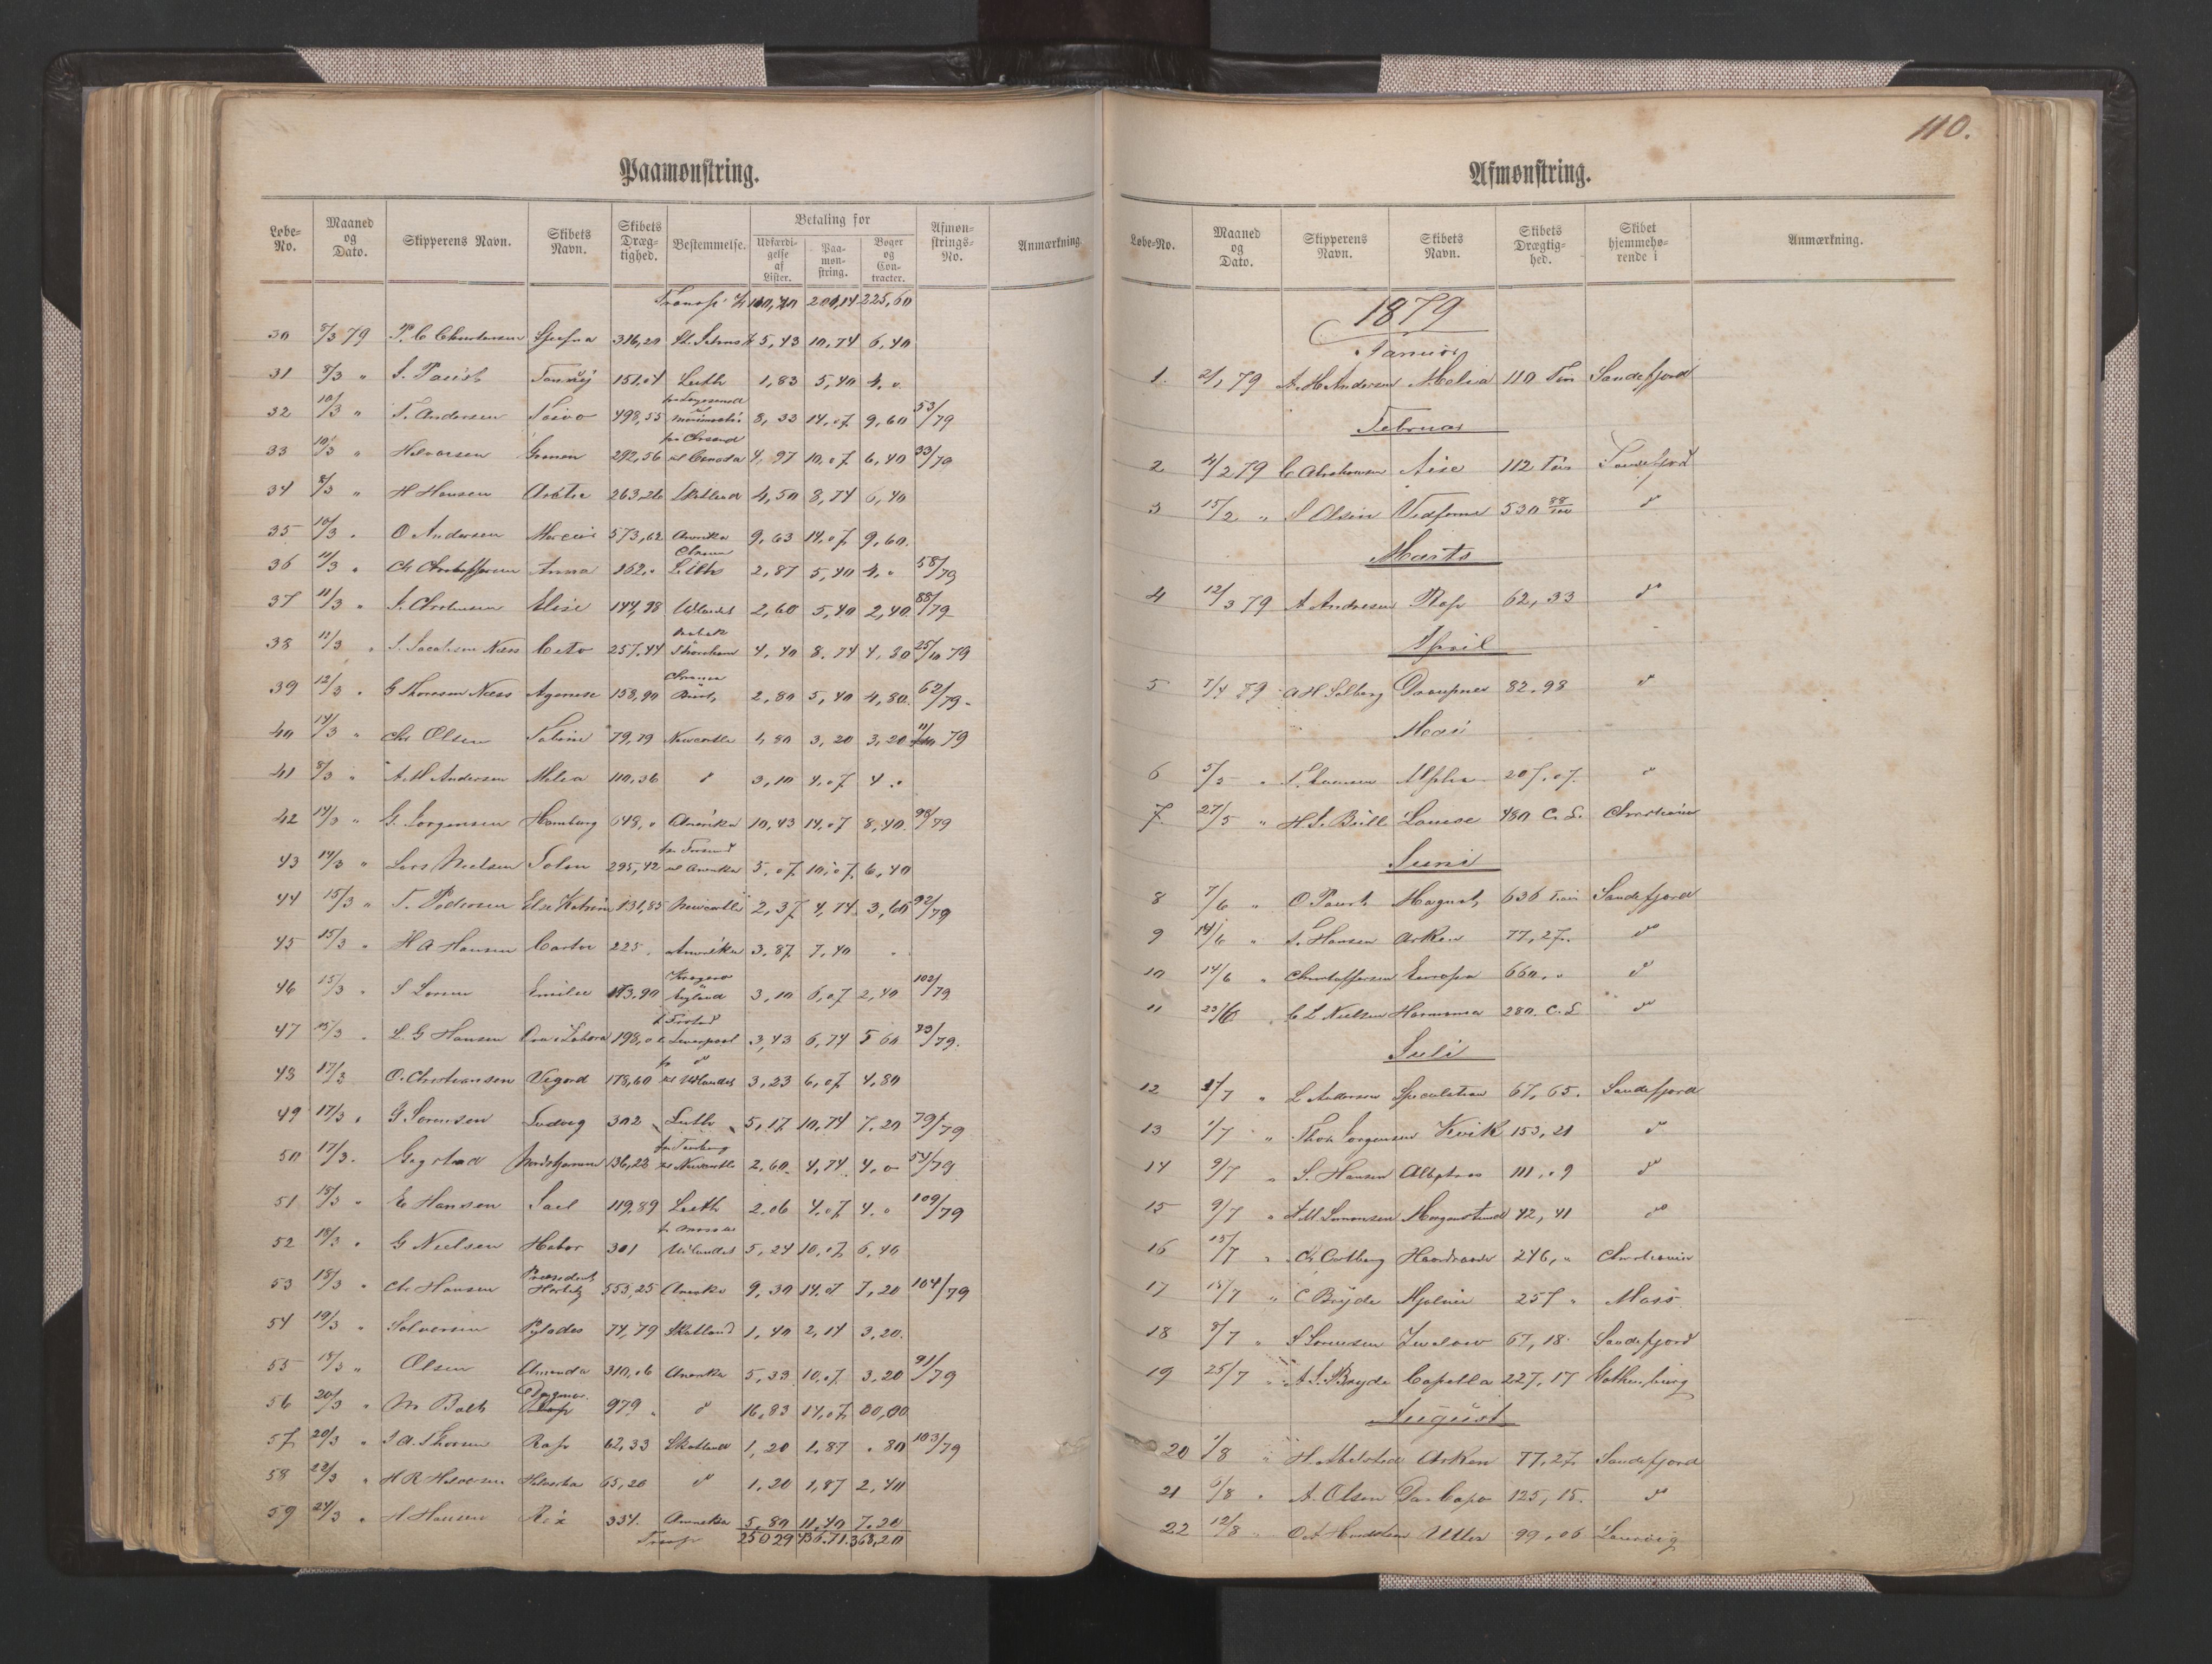 Paamønstring.
Løbe-No. Maaned og Dato. Skipperens Navn. Skibets Navn. Skibets Dræg-tighed. Bestemmelse. Betaling for Udfærdi-gelse af Lister. Paa-møn-string. Bøger og Con-tracter. Afmøn-strings-No. Anmærkning
Transp. 200,14 225,60
30 8/3 79 P. C. Christensen 316,20 5,43 10,74 6,40
31 8/3 " S. Paust 151,04 Leith 1,83 5,40 4,0
32 10/3 " T. Andersen Toivo 498,55 8,33 14,07 9,60 53/79
33 10/3 " Halvorsen Gronen 292,56 4,97 10,07 6,40 33/79
34 8/3 " H Hansen Arktic 263,26 Skotland 4,50 8,74 6,40
35 10/3 " O Andersen Mercur 573,62 Amerika 9,63 14,07 9,60
36 11/3 " Ch Christoffersen Anna 162,0 Leith 2,87 5,40 4,0 58/79
37 11/3 " Elise 144,98 Udlandet 2,60 5,40 2,40 88/79
38 11/3 " S. Jacobsen Næss Ceto 257,44 4,40 8,74 4,80 25/10 79
39 12/3 " G Thoresen Næss 158,90 2,80 5,40 4,80 62/79
40 14/3 " Chr Olsen Sabine 79,79 Newcastle 1,80 3,20 3,20 79
41 8/3 " A. M. Andersen Melia 110,36 d 3,10 4,07 4,0
42 14/3 " G. Jørgensen Hamburg 648,0 Amerika 10,43 14,07 8,40 98/79
43 14/3 " Lars Nielsen 295,42 Amerika 5,07 10,07 6,40
44 15/3 " T. Pedersen Else Katrine 131,85 Newcastle 2,37 4,74 3,60 92/79
45 15/3 " H A Hansen Castor 225 Amerika 3,87 7,40
46 15/3 " Emilie 173,90 Kragerø England 3,10 6,07 2,40 102/79
47 15/3 " L. G Hansen 198,0 Liverpool 3,43 6,74 5 60 93/79
48 17/3 O. Christiansen Vigard 178,60 Udlandet 3,23 6,07 4,80
49 17/3 " G. Sørensen Ludvig 302 Leith 5,17 10,74 7,20 79/79
50 17/3 Gogstad 136,22 Newcastle 2,60 4,74 4,0 54/79
51 18/3 " E Hansen Sael 119,89 Leith 2,06 4,07 4,0 109/79
52 18/3 " G Nielsen Habor 301 Udlandet 5,24 10,07 6,40
53 18/3 " Ch Hansen Præsident 553,25 Amerika 9,30 14,07 7,20 104/79
54 19/3 " Pylades 74,79 Skotland 1,40 2,14 3,20
55 18/3 " Olsen Amanda 310,06 Amerika 5,33 10,07 3,20 91/79
56 20/3 " M Balth Dagmar 979 d 16,83 14,07 00,00
57 20/3 " J A. Thorsen Rap 62,33 Skotland 1,20 1,87 " 80 103/79
58 22/3 " H R Halvorsen 65,26 d 1,20 1,87 2,40
59 24/3 " H Hansen Rex 334. Amerika 5,80 11,40 7,20
Transp 250 29 436,71 363,20
110.
Afmønstring.
Løbe-No. Maaned og Dato. Skipperens Navn. Skibets Navn. Skibets Drægtig-hed. Skibet hjemmehø-rende i Anmærkning.
1879
Januar
1. 2/1 79 A. M. Andersen Melia 110 Tøn Sandefjord
Februar
2 4/2 79 C Abrahamsen 112 Tøn Sandefjord
3 15/2 " S Olsen 530 88/100 d
Marts
4 12/3 79 A Andresen Rap 62,33 d
April
5 7/4 79 A H Solberg Draupner 82,98 d
Mai
6 5/5 " Alpha 207,07 d
7 27/5 " H. S. Bull Louise 480 C. L. Christiania
Juni
8 7/6 " O Paust Magnet 636 Tøn Sandefjord
9 14/6 " S. Hansen Arken 77,27 d
10 14/6 " Christoffersen Europa 660,0 d
11 23/6 " C L Nielsen Harmonia 280. C. L d
Juli
12 1/7 " L Andersen Speculation 67,65. Sandefjord
13 1/7 " Thor Jørgensen Kvik 153,21 d
14 9/7 " S. Hansen Albatros 111,09 d
15 9/7 " Simonsen Morgenstund 42,41 d
16 15/7 " Haardraade 246," Christiania
17 18/7 " C Bryde Hjalmar 257 " Moss
18 8/7 " S Sørensen 67,18 Sandefjord
19 25/7 " A. S. Bryde Capella 227,17 Gothenburg
August
20 1/8 " H. Abelsted Arken 77,27 Sandefjord
21 6/8 " A. Olsen Da Capo 125,15 d
22 12/8 " 99,06 Laurvig